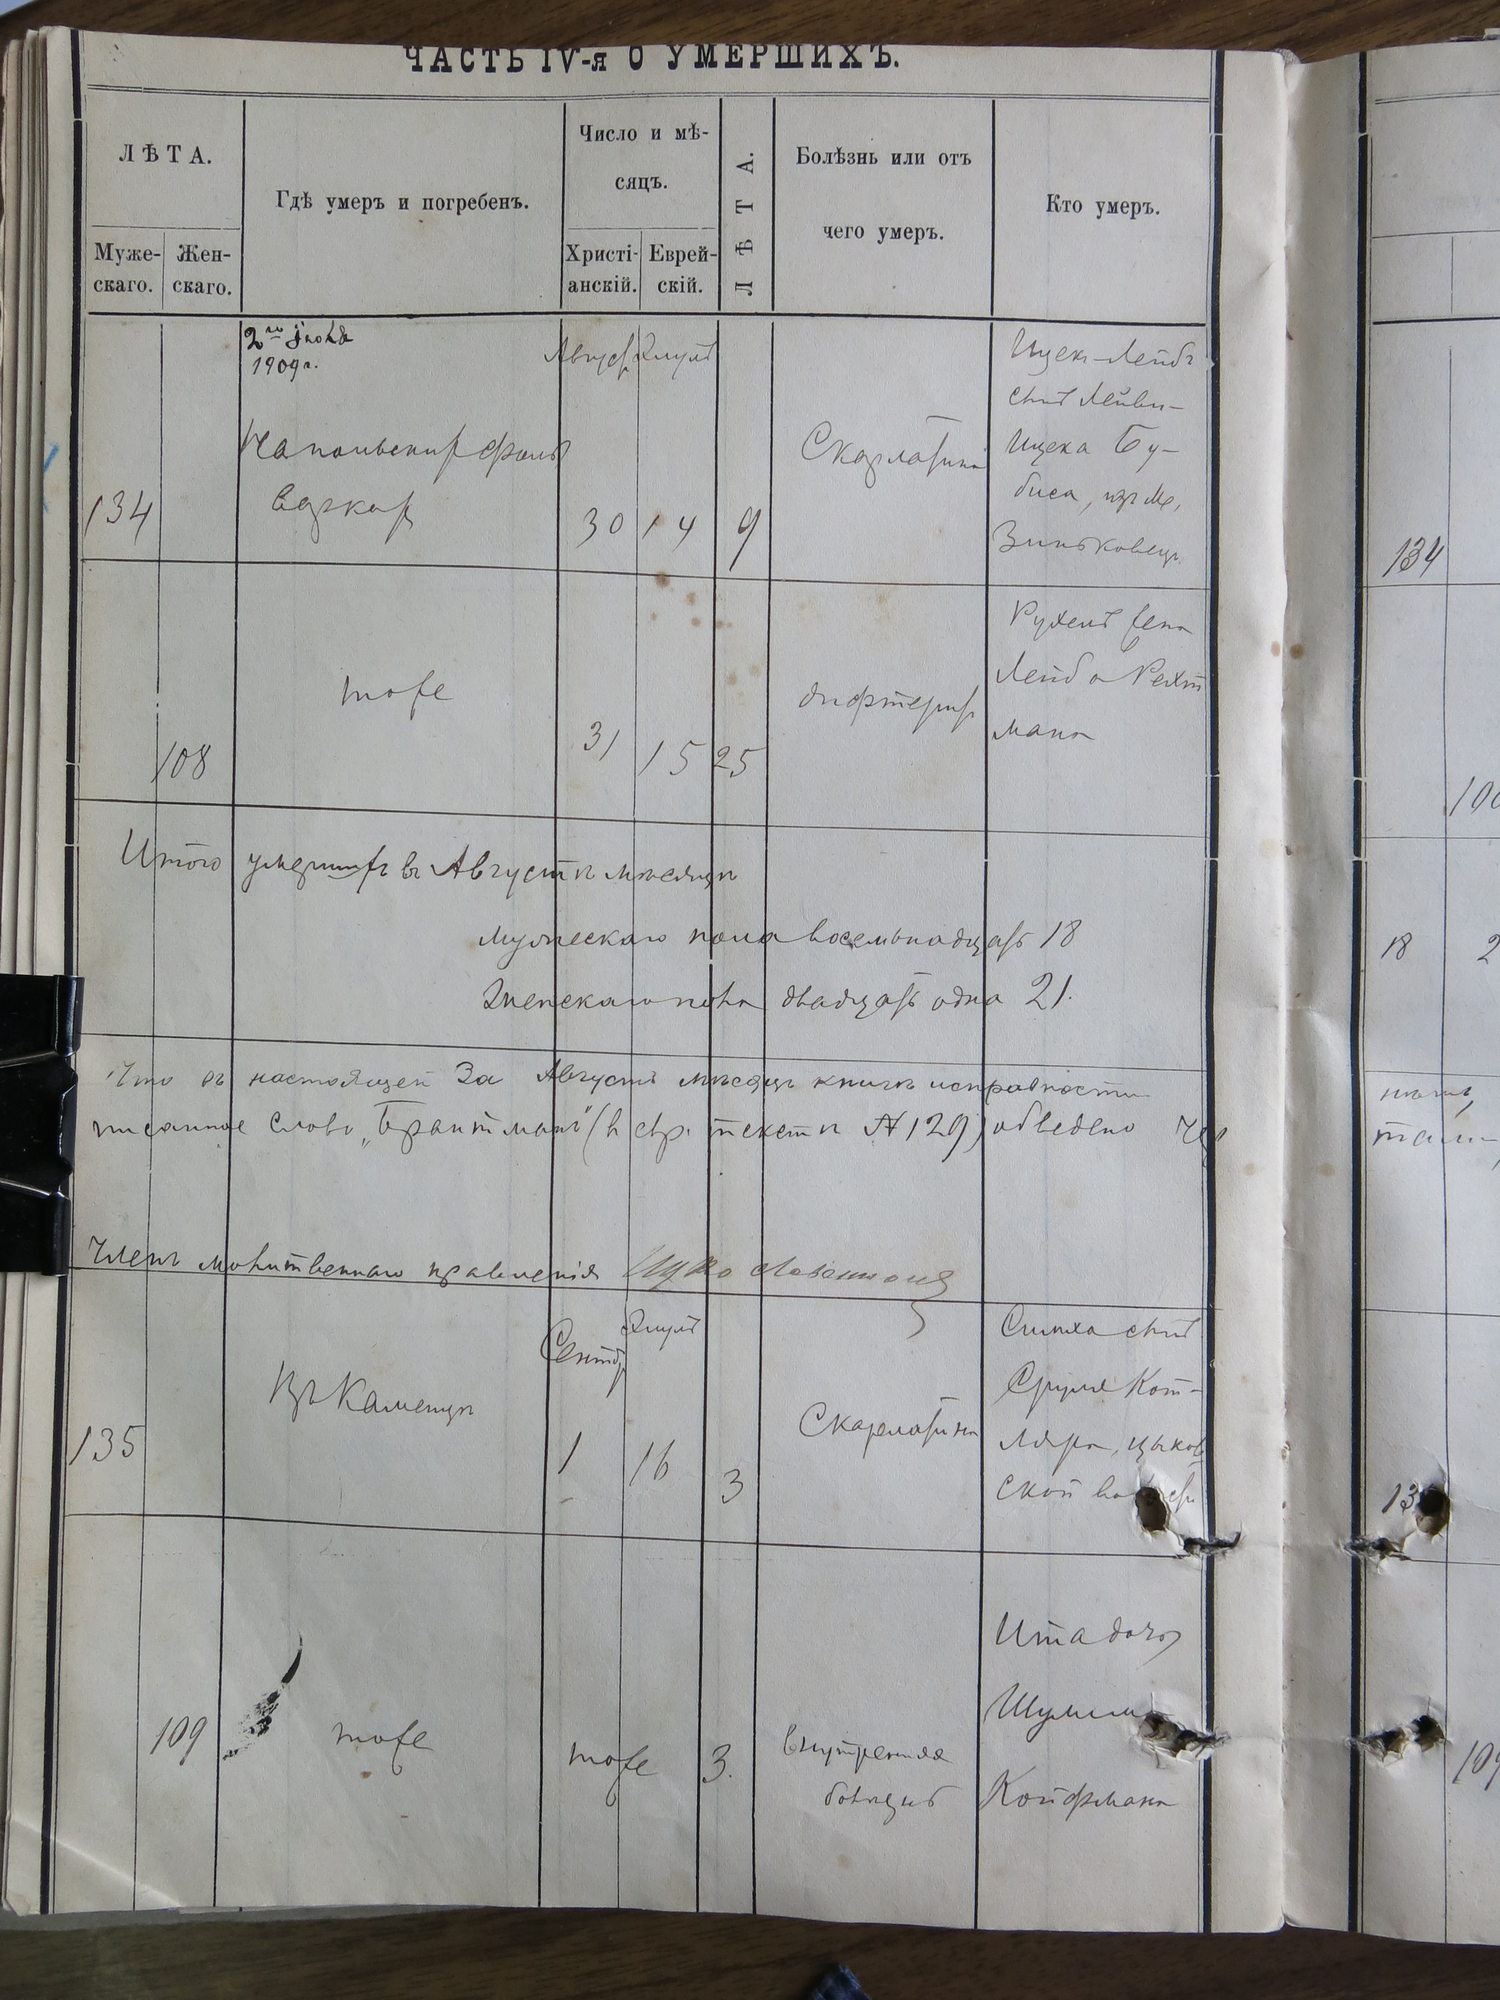 ЧАСТЬ IV-я О УМЕРШИХЪ.
ЛѢТА.
Муже-
скаго.
Жен-
скаго.
Гдѣ умеръ и погребенъ.
Число и мѣ-
сяцъ.
Христі-
анскій.
Еврей-
скій.
ЛѢТА.
Болѣзнь или отъ
чего умеръ.
Кто умеръ.
1909 г.
134
30
14
9
Скарлатина
Ицек-Лейбъ
сынъ Лейви-
Ицека Бу-
биса, изъ м.
Зиньковецъ
134
108
тоже
31
15
25
дифтеритъ
Рухель жена
Лейба Рехт
мана
Итого умершихъ въ Августѣ мѣсяцѣ
мужескаго пола восемьнадцать 18
Женскаго пола двадцать одна 21.
18
Что въ настоящей за Августъ мѣсяцъ книгѣ
писанное слово „Брантманъ" (въ евр. текстѣ № 129) обведено
Членъ молитвеннаго правленія
135
Въ Каменцѣ
Сентбр
Элулъ
1
16
3
Скарлатина
Симха сынъ
Сруля Кот-
ляра, цыков
ской
109
тоже
тоже
3.
внутренняя
болѣзнь
Ита дочь
Койфмана